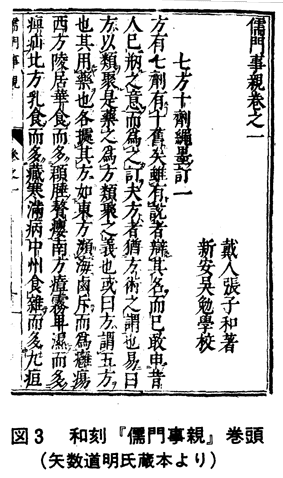 儒門事親卷之一
戴人張子和著
新安吳勉學校
七方十劑繩墨訂一
方有七劑有十舊矣雖有說者辯其名而已敢申昔
人已病之意而爲之訂夫方者猶方術之謂也易曰
方以類聚是藥之爲方類聚之義也或曰方謂五方
也其用藥也各據其方如東方瀕海鹵斥而爲癰瘍
西方陵居華食而多頵腄贅癭南方瘴霧卑濕而多
痺疝北方乳食而多藏寒滿病中州食雜而多九疸
儒門事親 卷之一
図3 和刻『儒門事親』巻頭
(矢数道明氏蔵本より)